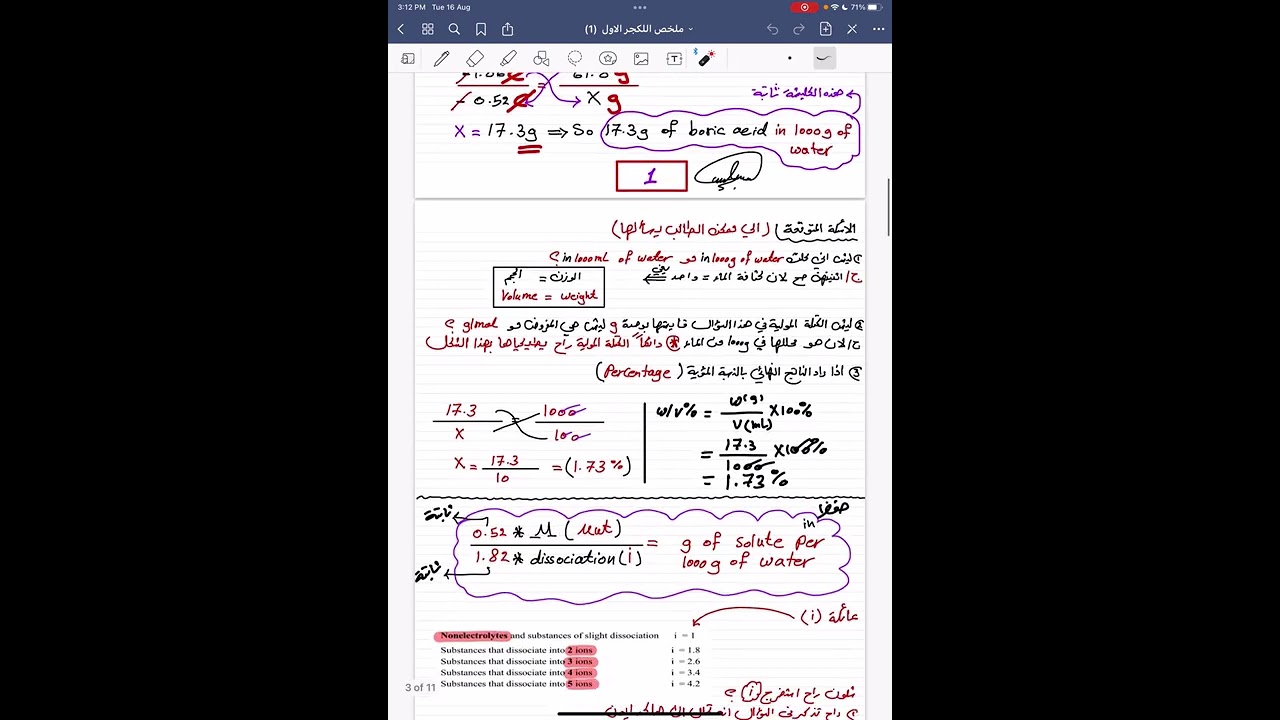 3:12 PM Tue 16 Aug
71%
ملخص اللكجر الاول (1)
-1.86
-0.52 = X g
هذه الكليشة ثابتة
X = 17.3g ⇒ So 17.3g of boric acid in 1000g of water
1
الاسئلة المتوقعة (الي ممكن الطالب يسألها)
in 1000g of water مو in 1000mL of water ؟
لان كثافة الماء = واحد يعني
الوزن = الحجم
Volume = weight
② ليش الكتلة المولية في هذا السؤال قايستها بوحدة g ليش هي المفروض مو g/mol ؟
ج/ لان هو محللها في 1000g من الماء * دائماً الكتلة المولية راح يطيحياها بهذا الشكل
③ اذا راد الناتج النهائي بالنسبة المئوية (Percentage)
17.3 / X = 1000 / 100
X = 17.3 / 10 = (1.73%)
w/v% = w(g) / V(mL) X 100%
= 17.3 / 1000 X 100%
= 1.73%
حفظ
ثابتة
0.52 * M (Mwt) / 1.82 * dissociation (i) = g of solute per in 1000g of water
ثابتة
عائلة (i)
Nonelectrolytes and substances of slight dissociation i = 1
Substances that dissociate into 2 ions i = 1.8
Substances that dissociate into 3 ions i = 2.6
Substances that dissociate into 4 ions i = 3.4
Substances that dissociate into 5 ions i = 4.2
3 of 11
شلون راح استخرج (i) ؟